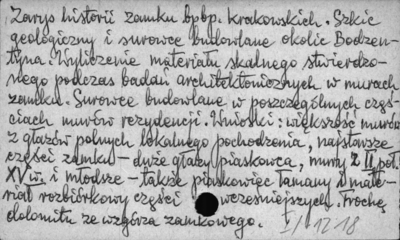 Zarys historii zamku bpbp. krakowskich. Szkic
geologiczny i surowce budowlane okolic Bodzen-
tyna. Wyliczenie materiału skalnego stwierdzo-
nego podczas badań architektonicznych w murach
zamku. Surowce budowlane w poszczególnych częś-
ciach murów rezydencji. Wnioski: większość murów
z głazów polnych lokalnego pochodzenia, najstarsze
części zamku - duże głazy piaskowca, mury z II poł.
XV w. i młodsze - także piaskowiec łamany i mate-
riał rozbiórkowy części wcześniejszych. Trochę
dolomitu ze wzgórza zamkowego.
I/1218